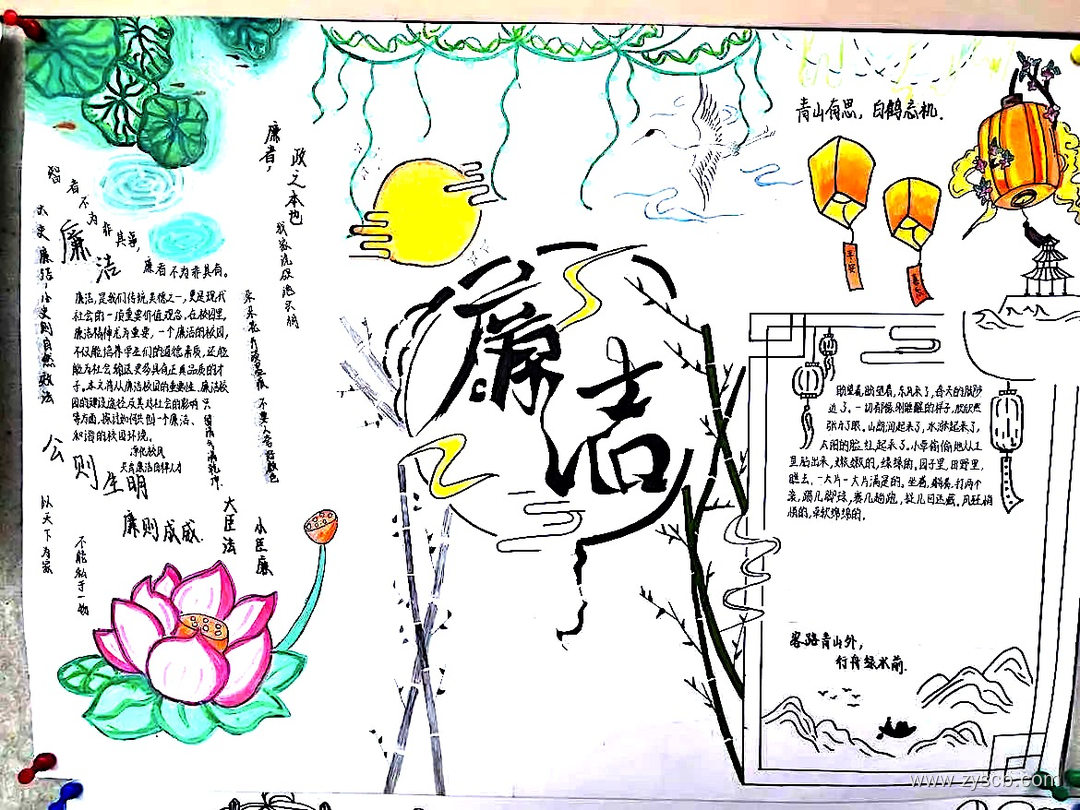 廉者，
政之本也
青山有思，白鹤忘机.
智者不为非其事，
廉者不为非其有。
廉洁
大史廉洁，小吏则自然效法
廉洁，是我们传统美德之一，更是现代
社会的一项重要价值观念。在校园里，
廉洁精神尤为重要，一个廉洁的校园，
不仅能培养学生们的道德素质，还能
能为社会输送更多具有正直品质的才
子。本文将从廉洁校园的重要性、廉洁校
园的建设途径及其对社会的影响
等方面，探讨如何共创一个廉洁、
和谐的校园环境。
净化校风
公则生明
廉则成威.
大臣法
小臣廉
以天下为家
不能私于一物
不要人夸好颜色
只留清气满乾坤.
廉洁
平安
喜乐
盼望着，盼望着，东风来了，春天的脚步
近了。一切都像刚睡醒的样子，欣欣然
张开了眼。山朗润起来了，水涨起来了，
太阳的脸红起来了。小草偷偷地从土
里钻出来，嫩嫩的，绿绿的，园子里，田野里，
瞧去，一大片一大片满是的。坐着，躺着，打两个
滚，踢几脚球，赛几趟跑，捉几回迷藏，风轻悄
悄的，草软绵绵的.
客路青山外，
行舟绿水前.
www.zyscb.com